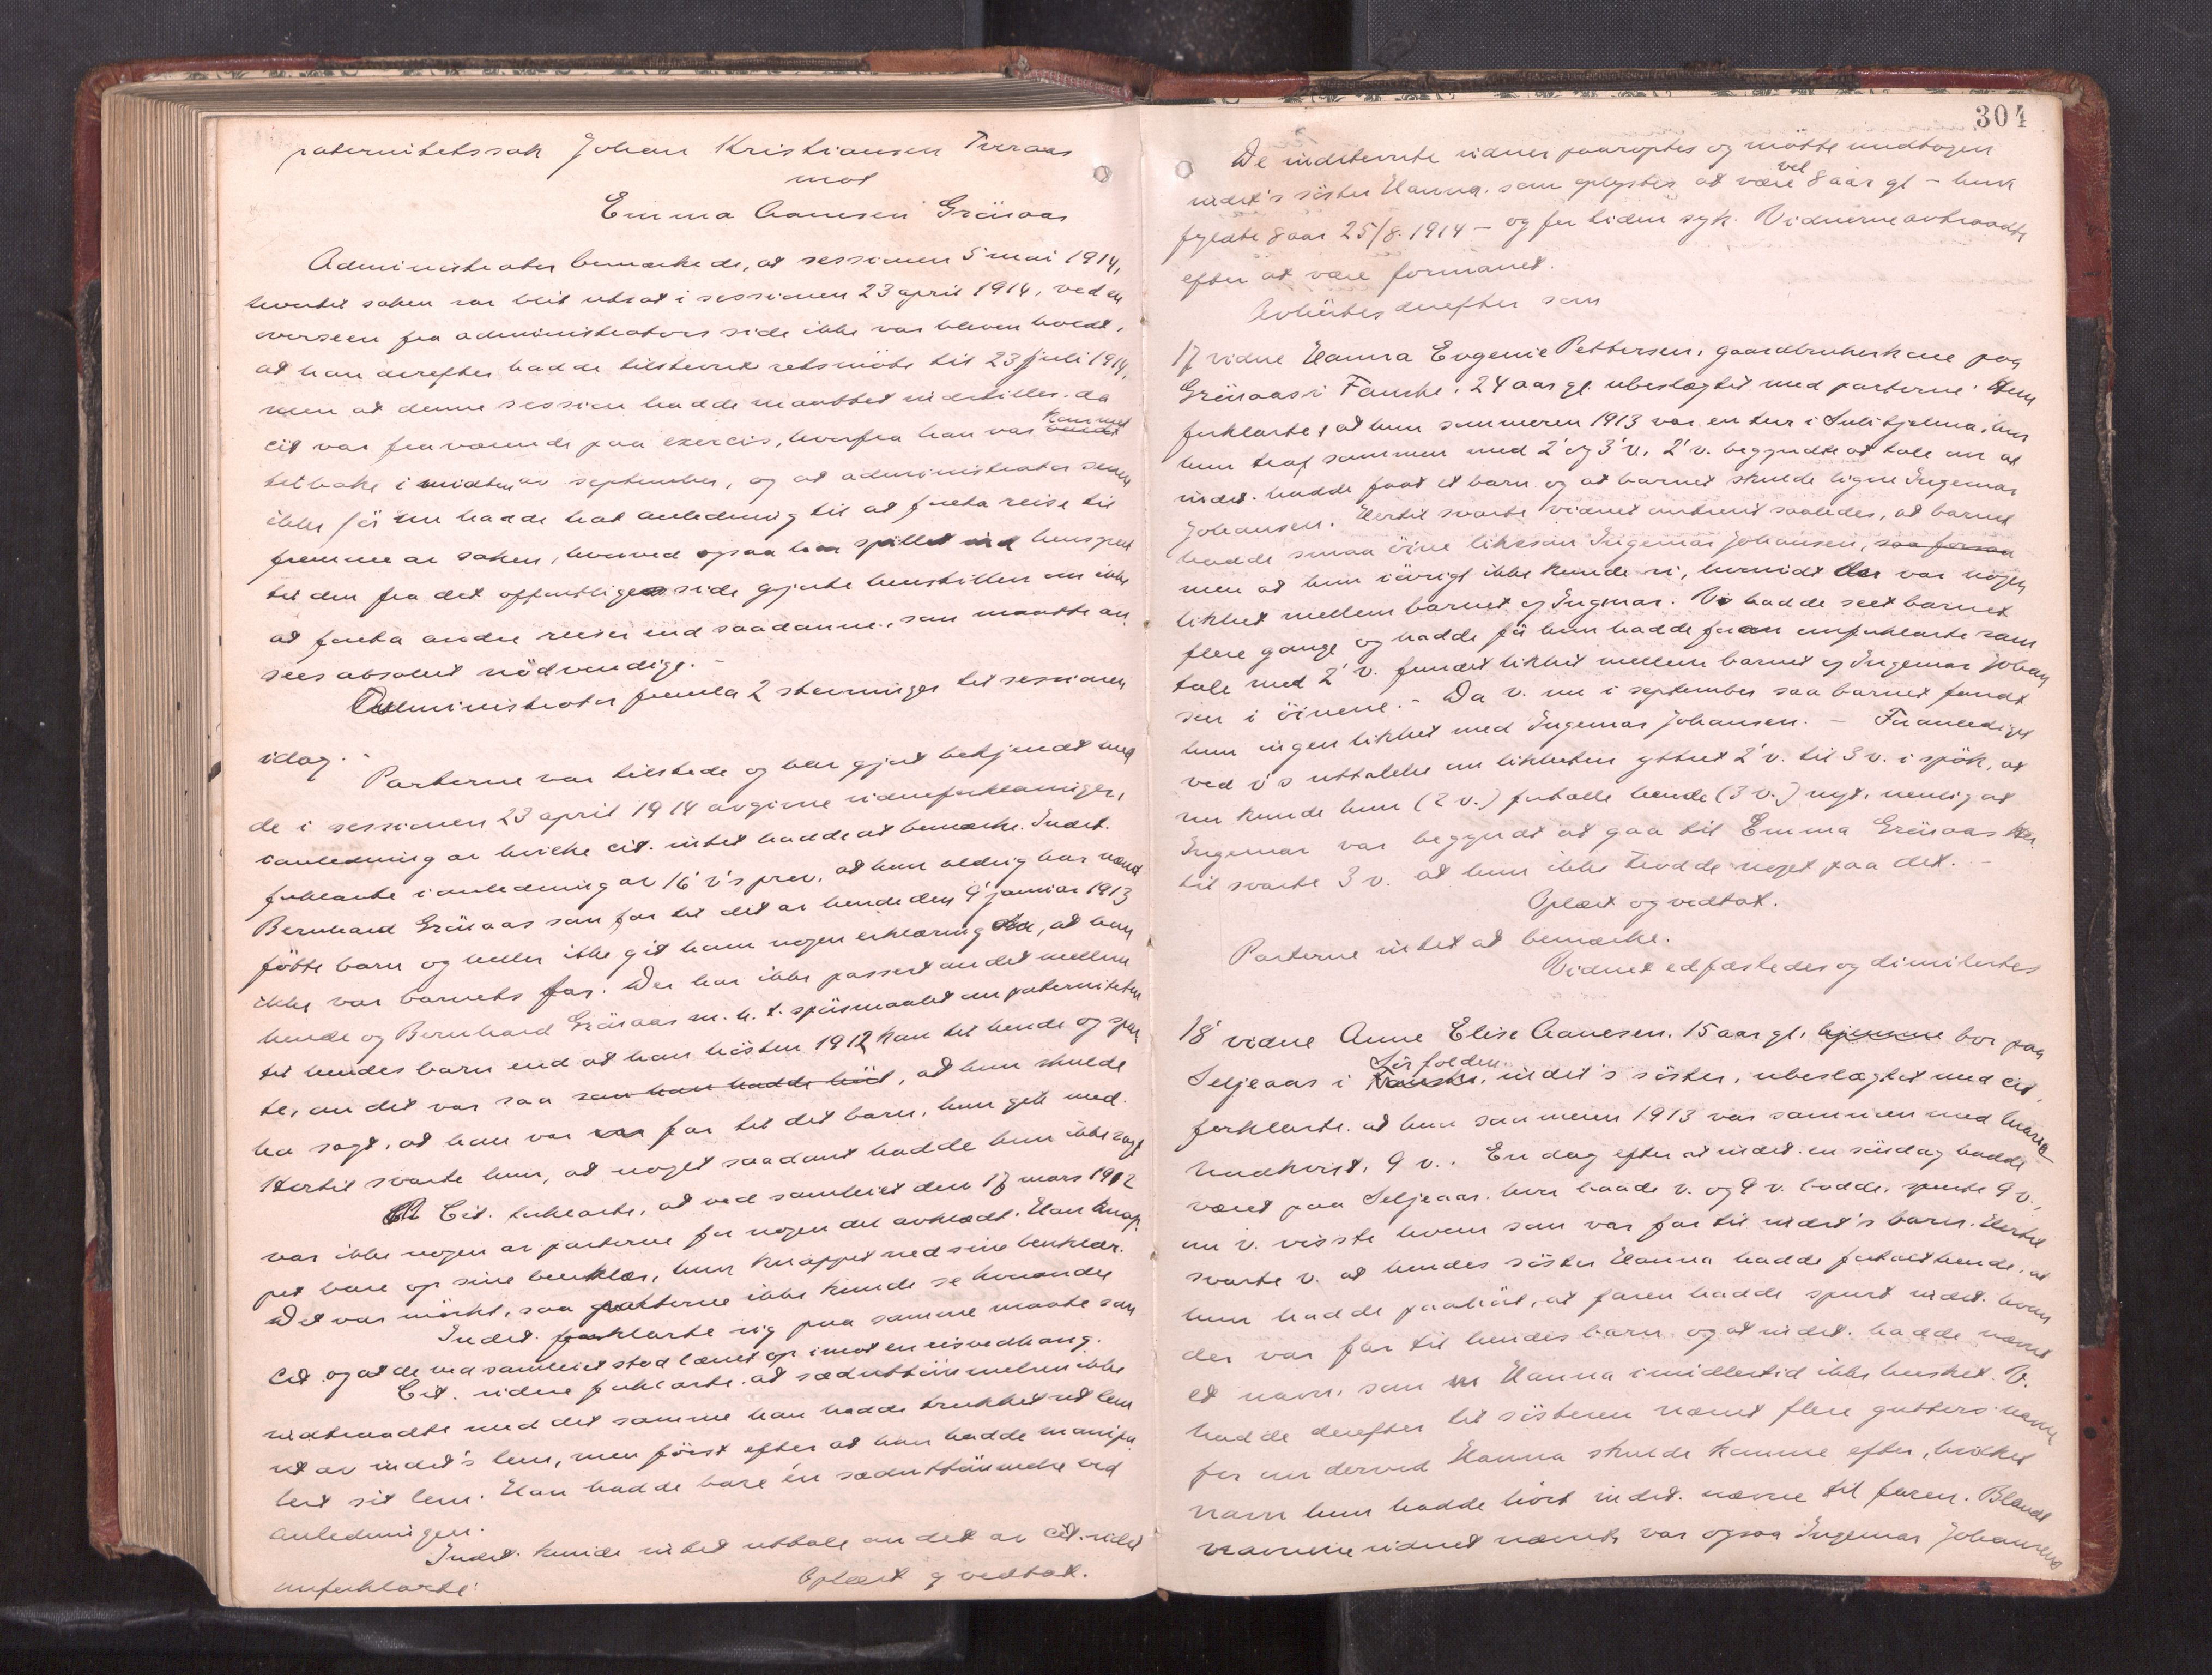 paternitetssak Johan Kristiansen Tveraas
mot
Emma Aanesen Gröisaas
Administrator bemærkede, at sessionen 5 mai 1914,
hvortil saken var blit utsat i sessionen 23 april 1914, ved en
overseen fra administrators side ikke var bleven holdt,
at han derefter hadde tilstevnt retsmöte til 23 juli 1914,
men at denne session hadde maattet indstilles, da
cit var fraværende paa exercis, hvorfra han var kommet
tilbake i midten av september, og at administrator senere
ikke för nu hadde hat anledning til at foreta reise til
fremme av saken, hvorved ogsaa har spillet ind hensynet
til den fra det offentliges side gjorte henstillen om ikke
at foreta andre reiser end saadanne, som maatte an
sees absolut nödvendige. -
Administrator fremla 2 stevninger til sessionen
idag. -
Parterne var tilstede og blev gjort bekjendt med
de i sessionen 23 april 1914 avgivne vidneforklaringer,
i anledning av hvilke cit. intet hadde at bemærke. Indst.
forklarte i anledning av 16' v's prov, at hun aldrig har nævnt
Bernhard Gröisaas som far til det av hende den 9' januar 1913
födte barn og heller ikke git ham nogen erklæring om, at han
ikke var barnets far. Der har ikke passert andet mellem
hende og Bernhard Gröisaas m. h. t. spörsmaalet om paterniteten
til hendes barn end at han hösten 1912 kom til hende og spur
te, om det var saa som han hadde hört, at hun skulde
ha sagt, at han var far til det barn, hun gik med.
Hertil svarte hun, at noget saadant hadde hun ikke sagt
Cit. forklarte, at ved samleiet den 17 mars 1912
var ikke nogen av parterne for nogen del avklædt. Han knap
pet bare op sine benklær, hun knappet ned sine benklær.
Det var mörkt, saa parterne ikke kunde se hverandre
Indst. forklarte sig paa samme maate som
Cit. og at de ved samleiet stod lænet op imot en risvedhaug.
Cit. videre forklarte, at sæduttömmelsen ikke
indtraadte med det samme han hadde trukket ut lem
ut av indst's lem, men först efter at han hadde manipu
lert sit lem. Han hadde bare én sæduttömmelse ved
anledningen.
Indst. kunde intet uttale om det av cit. sidst
anforklarte.
Oplæst og vedtat.
304
De indstevnte vidner paaroptes og mötte undtagen
indst's söster Hanna, som oplystes at være vel 8 aar gl - hun
fyldte 8 aar 25/8 1914 - og for tiden syk. Vidnerne avtraadte
efter at være formanet.
Avhörtes derefter som
17 vidne Hanna Evgenie Pettersen, gaardbrukerkone paa
Gröisaas i Fauske, 24 aar gl. ubeslægtet med parterne. Hun
forklarte, at hun sommeren 1913 var en tur i Sulitjelma, hvor
hun traf sammen med 2' og 3' v. 2' v. begyndte at tale om at
indst. hadde faat et barn og at barnet skulde ligne Ingemar
Johansen. Hertil svarte vidnet omtrent saaledes, at barnet
hadde smaa öine likesom Ingemar Johansen, saa forsaa
men at hun iövrigt ikke kunde si, hvorvidt der var nogen
likhet mellem barnet og Ingmar. V. hadde seet barnet
flere gange og hadde för hun hadde foran omforklarte sam
tale med 2' v. fundet likhet mellem barnet og Ingemar Johan
sen i öinene. - Da v. nu i september saa barnet fandt
hun ingen likhet med Ingemar Johansen. - Foranlediget
ved v's uttalelse om likheten yttret 2' v. til 3 v. i spök, at
nu kunde hun (2 v.) fortælle hende (3 v.) nyt, nemlig at
Ingemar var begyndt at gaa til Emma Gröisaas Her
til svarte 3 v. at hun ikke trodde noget paa det. -
Oplæst og vedtat.
Parterne intet at bemærke.
Vidnet edfæstedes og dimitertes
18' vidne Anne Elise Aanesen, 15 aar gl, hjemme bor paa
Seljeaas i Fauske Sörfolden, indst's söster, ubeslægtet med cit,
forklarte, at hun sommeren 1913 var sammen med Maria
Lindkvist, 9 v.. En dag efter at indst. en söndag hadde
været paa Seljeaas, hvor baade v. og 9 v. bodde, spurte 9 v.,
om v. visste hvem som var far til indst's barn. Hertil
svarte v. at hendes söster Hanna hadde fortalt hende, at
hun hadde paahört, at faren hadde spurt indst. hvem
der var far til hendes barn og at indst. hadde nævnt
et navn, som Hanna imidlertid ikke husket. V.
hadde derefter til sösteren nævnt flere gutters navne
for om derved Hanna skulde komme efter, hvilket
navn hun hadde hört indst. nævne til faren. Blandt
navnene vidnet nævnte var ogsaa Ingemar Johansens